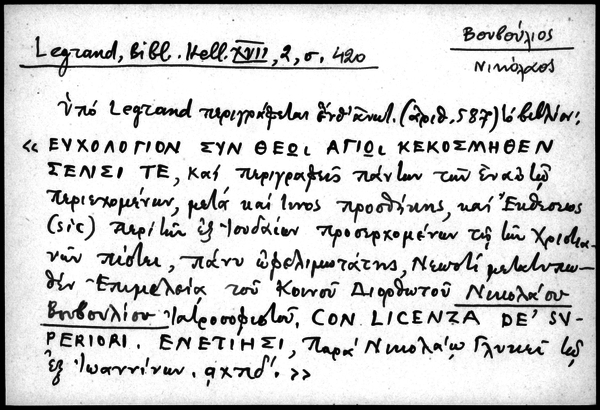 Legrand, Bibl. Hell. XVII, 2, σ. 420
Βουβούλιος
Νικόλαος
ὑπό Legrand περιγράφεται (ἀριθ. 587) τό βιβλίον:
« ΕΥΧΟΛΟΓΙΟΝ ΣΥΝ ΘΕΩι ΑΓΙΩι ΚΕΚΟΣΜΗΘΕΝ
ΣΕΝΣΙ ΤΕ, καί περιγραφαῖς πάντων τῶν ἐν αὐτῷ
περιεχομένων, μετά καί τινος προσθήκης, καί Ἐκθέσεως
(sic) περί τῶν ἐξ Ἰουδαίων προσερχομένων τῇ τῶν Χριστια-
νῶν πίστει, πάνυ ὠφελιμωτάτης, Νεωστί μετατυπω-
θέν Ἐπιμελείᾳ τοῦ Κοινοῦ Διορθωτοῦ Νικολάου
Βουβουλίου Ἰατροσοφιστοῦ. CON LICENZA DE' SU-
PERIORI. ΕΝΕΤΙΗΣΙ, Παρά Νικολάῳ Γλυκεῖ τῷ
ἐξ Ἰωαννίνων. ͵αχπδ'. »